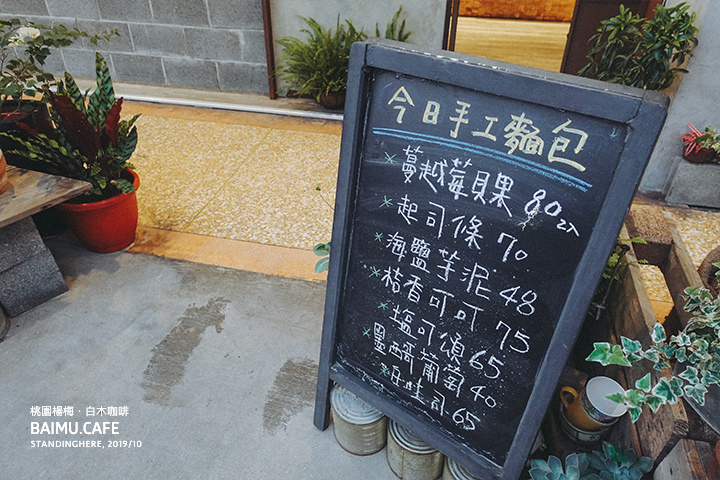 今日手工麵包
蔓越莓貝果 80 2入
起司條 70
海鹽芋泥 48
桔香可可 75
塩可頌 65
墨西哥葡萄 40
白吐司 65
桃園楊梅．白木咖啡
BAIMU.CAFE
STANDINGHERE, 2019/10